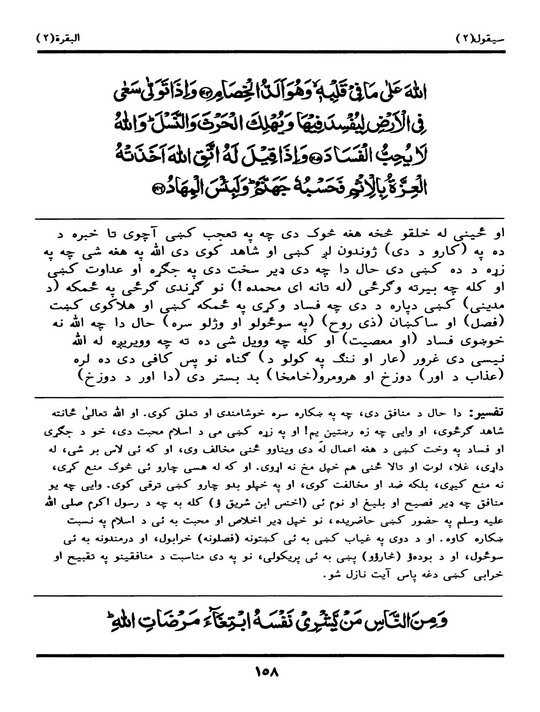 سيقول(٢) البقرة(٢)
اللهَ عَلٰى مَا فِيْ قَلْبِهٖ ۙ وَهُوَ اَلَدُّ الْخِصَامِ ﴿٢٠٤﴾ وَاِذَا تَوَلّٰى سَعٰى
فِي الْاَرْضِ لِيُفْسِدَ فِيْهَا وَيُهْلِكَ الْحَرْثَ وَالنَّسْلَ ؕ وَاللهُ
لَا يُحِبُّ الْفَسَادَ ﴿٢٠٥﴾ وَاِذَا قِيْلَ لَهُ اتَّقِ اللهَ اَخَذَتْهُ
الْعِزَّةُ بِالْاِثْمِ فَحَسْبُهٗ جَهَنَّمُ ؕ وَلَبِئْسَ الْمِهَادُ ﴿٢٠٦﴾
او ځيني له خلقو څخه هغه څوک دى چه په تعجب کښې آچوى تا خبره د
ده په (کارو د دى) ژوندون لږ کښې او شاهد کوى دى الله په هغه شى چه په
زړه د ده کښې دى حال دا چه دى ډير سخت دى په جګړه او عداوت کښې
او کله چه بيرته وګرځى (له تانه اى محمده!) نو ګرندى ګرځى په ځمکه (د
مدينې) کښې دپاره د دى چه فساد وکړى په ځمکه کښې او هلاکوى کښت
(فصل) او ساکښان (ذى روح) (په سوځولو او وژلو سره) حال دا چه الله نه
خوښوى فساد (او معصيت) او کله چه وويل شى ده ته چه وويريږه له الله
نيسى دى غرور (عار او ننګ په کولو د) ګناه نو پس کافى دى ده لره
(عذاب د اور) دوزخ او هرومرو(خامخا) بد بستر دى (دا اور د دوزخ)
تفسير: دا حال د منافق دى، چه په ښکاره سره خوشامندى او تملق کوى. او الله تعالىٰ ځانته
شاهد ګرځوى، او وايى چه زه رښتين يم! او په زړه کښې مى د اسلام محبت دى، خو د جګړى
او فساد په وخت کښې د هغه اعمال له دى ويناوو ځنى مخالف وى، او که ئى لاس بر شى، له
داړى، غلا، لوټ او تالا ځنى هم خپل مخ نه اړوى. او که له هسى چارو ئى څوک منع کړى،
نه منع کيږى، بلکه ضد او مخالفت کوى، او په خپلو بدو چارو کښې ترقى کوى. وايى چه يو
منافق چه ډير فصيح او بليغ او نوم ئى (اخنس ابن شريق ؤ) کله به چه د رسول اکرم صلى الله
عليه وسلم په حضور کښې حاضريده، نو خپل ډير اخلاص او محبت به ئى د اسلام په نسبت
ښکاره کاوه. او د دوى په غياب کښې به ئى کښتونه (فصلونه) خرابول، او درمندونه به ئى
سوځول، او د بوده‌ؤ (څارؤو) پښى به ئى پريکولى، نو په دى مناسبت د منافقينو په تقبيح او
خرابى کښې دغه پاس آيت نازل شو.
وَمِنَ النَّاسِ مَنْ يَّشْرِيْ نَفْسَهُ ابْتِغَآءَ مَرْضَاتِ اللهِ ؕ
١٥٨